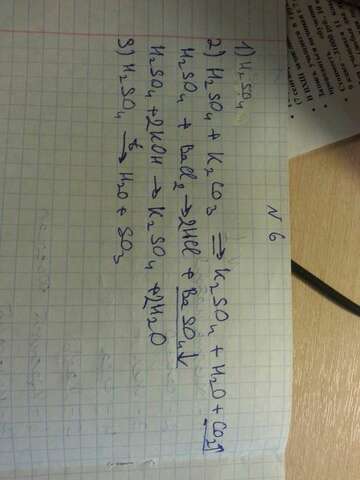 N 6
1) H₂SO₄
2) H₂SO₄ + K₂CO₃ ⇒ K₂SO₄ + H₂O + CO₂↑
H₂SO₄ + BaCl₂ → 2HCl + BaSO₄↓
H₂SO₄ + 2KOH → K₂SO₄ + 2H₂O
3) H₂SO₄ →t° H₂O + SO₃